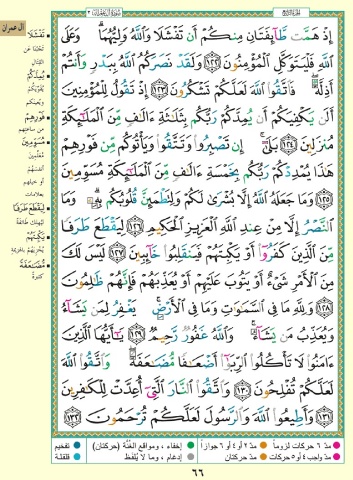 سُورَةُ آلِ عِمْرَان ٣
آل عمران
إِذْ هَمَّت طَّآئِفَتَانِ مِنكُمْ أَن تَفْشَلَا وَٱللَّهُ وَلِيُّهُمَا ۗ وَعَلَى
ٱللَّهِ فَلْيَتَوَكَّلِ ٱلْمُؤْمِنُونَ ﴿١٢٢﴾ وَلَقَدْ نَصَرَكُمُ ٱللَّهُ بِبَدْرٍ وَأَنتُمْ
أَذِلَّةٌ ۖ فَٱتَّقُوا۟ ٱللَّهَ لَعَلَّكُمْ تَشْكُرُونَ ﴿١٢٣﴾ إِذْ تَقُولُ لِلْمُؤْمِنِينَ
أَلَن يَكْفِيَكُمْ أَن يُمِدَّكُمْ رَبُّكُم بِثَلَـٰثَةِ ءَالَـٰفٍ مِّنَ ٱلْمَلَـٰٓئِكَةِ
مُنزَلِينَ ﴿١٢٤﴾ بَلَىٰٓ ۚ إِن تَصْبِرُوا۟ وَتَتَّقُوا۟ وَيَأْتُوكُم مِّن فَوْرِهِمْ
هَـٰذَا يُمْدِدْكُمْ رَبُّكُم بِخَمْسَةِ ءَالَـٰفٍ مِّنَ ٱلْمَلَـٰٓئِكَةِ مُسَوِّمِينَ
﴿١٢٥﴾ وَمَا جَعَلَهُ ٱللَّهُ إِلَّا بُشْرَىٰ لَكُمْ وَلِتَطْمَئِنَّ قُلُوبُكُم بِهِۦ ۗ وَمَا
ٱلنَّصْرُ إِلَّا مِنْ عِندِ ٱللَّهِ ٱلْعَزِيزِ ٱلْحَكِيمِ ﴿١٢٦﴾ لِيَقْطَعَ طَرَفًا
مِّنَ ٱلَّذِينَ كَفَرُوٓا۟ أَوْ يَكْبِتَهُمْ فَيَنقَلِبُوا۟ خَآئِبِينَ ﴿١٢٧﴾ لَيْسَ لَكَ
مِنَ ٱلْأَمْرِ شَىْءٌ أَوْ يَتُوبَ عَلَيْهِمْ أَوْ يُعَذِّبَهُمْ فَإِنَّهُمْ ظَـٰلِمُونَ
﴿١٢٨﴾ وَلِلَّهِ مَا فِى ٱلسَّمَـٰوَٰتِ وَمَا فِى ٱلْأَرْضِ ۚ يَغْفِرُ لِمَن يَشَآءُ
وَيُعَذِّبُ مَن يَشَآءُ ۚ وَٱللَّهُ غَفُورٌ رَّحِيمٌ ﴿١٢٩﴾ يَـٰٓأَيُّهَا ٱلَّذِينَ
ءَامَنُوا۟ لَا تَأْكُلُوا۟ ٱلرِّبَوٰٓا۟ أَضْعَـٰفًا مُّضَـٰعَفَةً ۖ وَٱتَّقُوا۟ ٱللَّهَ
لَعَلَّكُمْ تُفْلِحُونَ ﴿١٣٠﴾ وَٱتَّقُوا۟ ٱلنَّارَ ٱلَّتِىٓ أُعِدَّتْ لِلْكَـٰفِرِينَ
﴿١٣١﴾ وَأَطِيعُوا۟ ٱللَّهَ وَٱلرَّسُولَ لَعَلَّكُمْ تُرْحَمُونَ ﴿١٣٢﴾
تَفْشَلَا
القتال
يُمِدَّكُمْ
فَوْرِهِمْ
مُسَوِّمِينَ
لِيَقْطَعَ طَرَفًا
يَكْبِتَهُمْ
مُضَـٰعَفَةً
كثيرة
مدّ ٦ حركات لزوماً
مدّ ٢ أو ٤ أو ٦ جوازاً
إخفاء، ومواقع الغُنَّة (حركتان)
تفخيم
مدّ واجب ٤ أو ٥ حركات
مدّ حركتان
إدغام، وما لا يُلفظ
قلقلة
٦٦